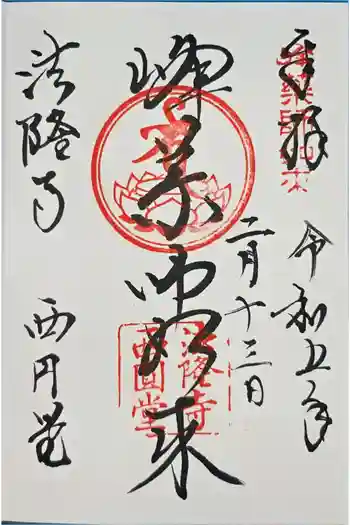 奉拝
令和五年
二月十三日
峰薬師如来
法隆寺
西円堂
法隆寺
西圓堂